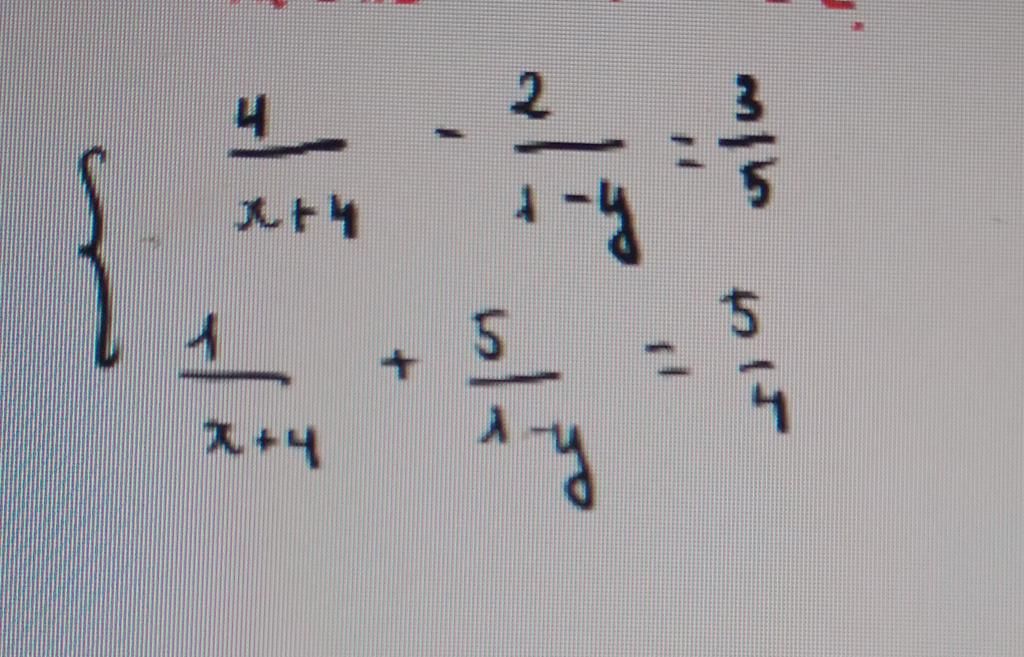 4/(x+4) - 2/(1-y) = 3/5
1/(x+4) + 5/(1-y) = 5/4